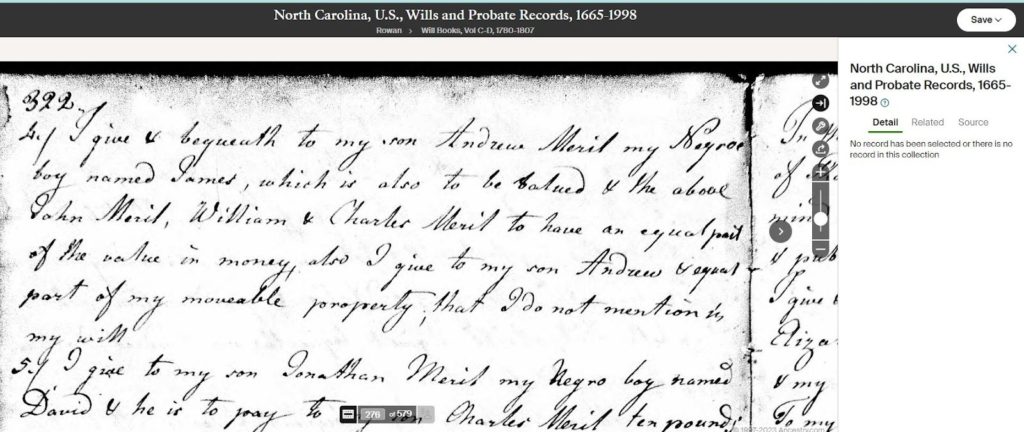 North Carolina, U.S., Wills and Probate Records, 1665-1998
Rowan > Will Books, Vol C-D, 1780-1807
Save
North Carolina, U.S., Wills and Probate Records, 1665-1998
Detail Related Source
No record has been selected or there is no record in this collection
322
4.) I give & bequeath to my son Andrew Meril my Negroe
boy named James, which is also to be valued & the above
John Meril, William & Charles Meril to have an equal part
of the value in money, also I give to my son Andrew & equal
part of my moveable property, that I do not mention in
my will
5.) I give to my son Jonathan Meril my Negro boy named
David & he is to pay to my son Charles Meril ten pounds
276 of 579
of
& pub
I give
Eliza
& my
To my
© 1997-2023 Ancestry.com